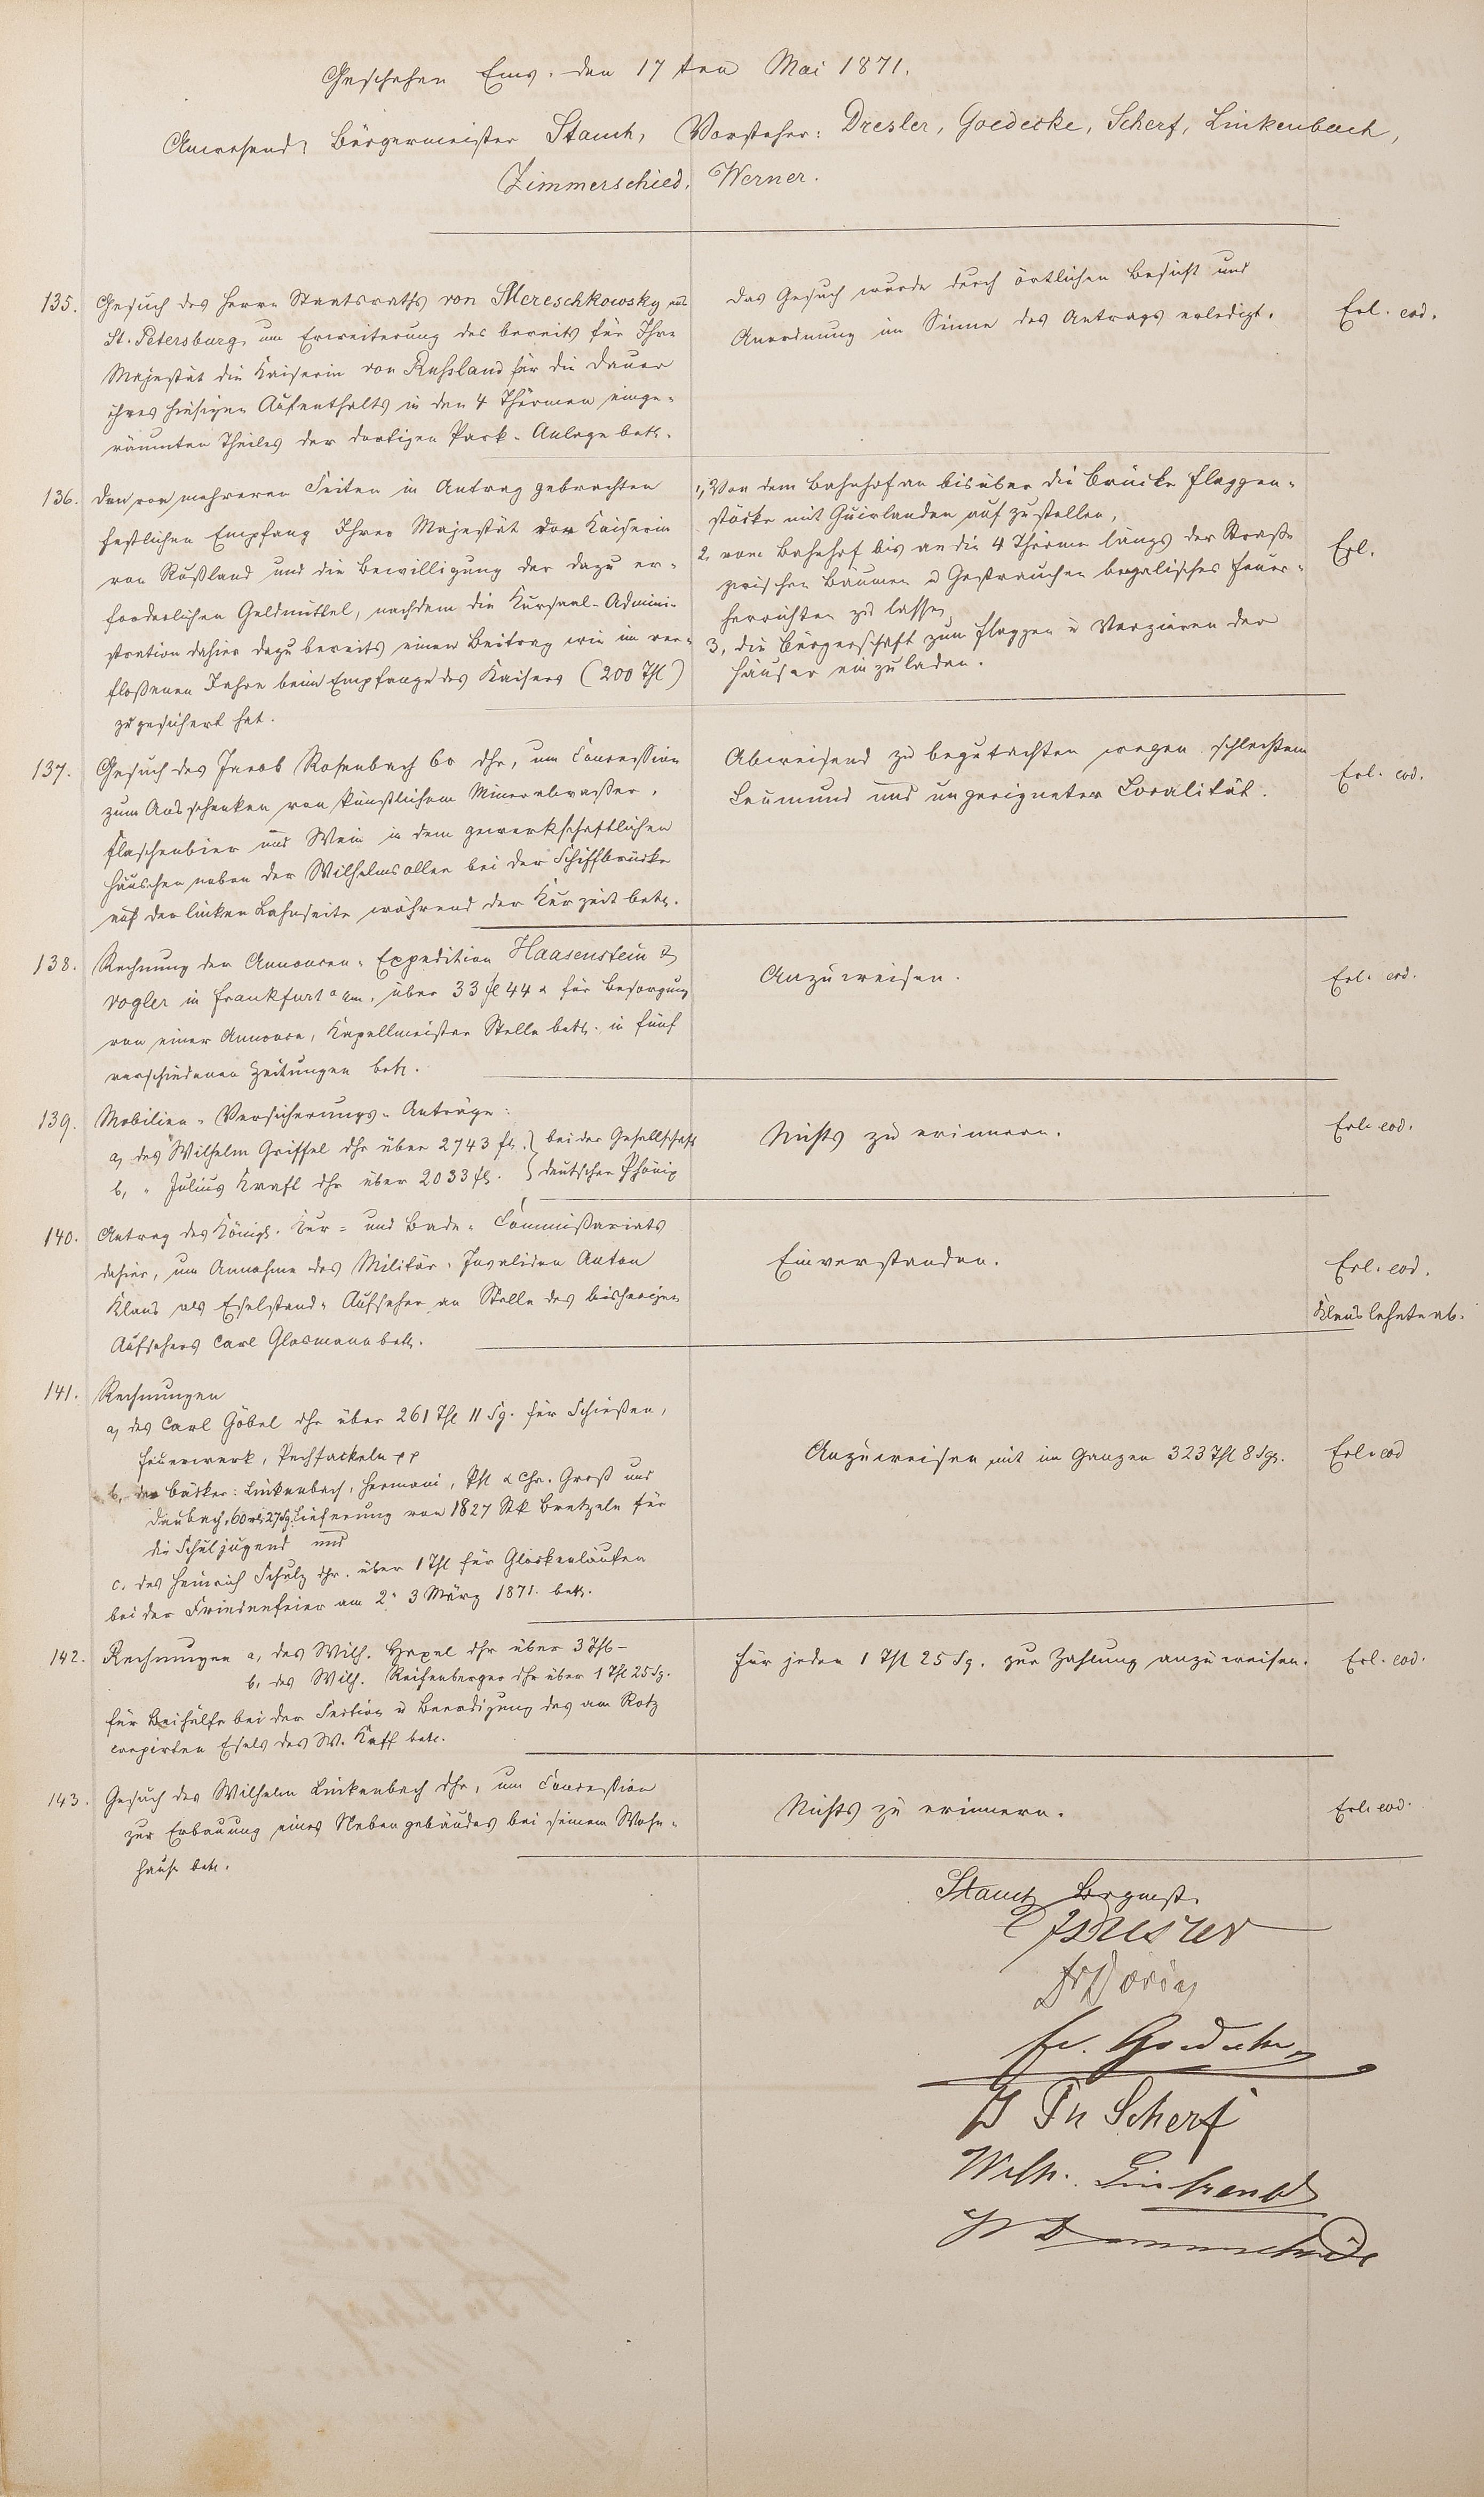 Geschehen Ems. den 17ten Mai 1871.
Anwesend, Bürgermeister Stamh, Vorsteher: Dresler, Goedecke, Scherf, Linkenbach,
Zimmerschied, Werner.
135. Gesuch des Herrn Staatsraths von Mereschkowsky aus
St. Petersburg, um Erweiterung des bereits für Ihre
Majestät die Kaiserin von Rußland für die Dauer
ihres hiesigen Aufenthalts in den 4 Thürmen einge-
räumten Theiles der dortigen Park-Anlage betr.
Das Gesuch wurde durch örtlichen Besicht und
Anordnung im Sinne des Antrags erledigt.
Erl. eod.
136. Den von mehreren Seiten in Antrag gebrachten
festlichen Empfang Ihrer Majestät der Kaiserin
von Rußland und die Bewilligung der dazu er-
forderlichen Geldmittel, nachdem die Kursaal-Admini-
stration dahier dazu bereits einen Beitrag wie im ver-
floßenen Jahre beim Empfange des Kaisers (200 Thl)
zugesichert hat.
1, Von dem Bahnhof an bis über die Brücke Flaggen-
stöcke mit Guirlanden auf zu stellen,
2, vom Bahnhof bis an die 4 Thürme längs der Straße
zwischen Bäumen u Gesträuchen bengalisches Feuer-
herrichten zu lassen
3, die Bürgerschaft zum Flaggen u Verzieren der
Häuser einzuladen.
Erl.
137. Gesuch des Jacob Rosenbach 6r dhr, um Concession
zum Ausschenken von künstlichem Mineralwaßer,
Flaschenbier und Wein in dem gewerkschaftlichen
Häuschen neben der Wilhelmsallee bei der Schiffbrücke
auf der linken Lahnseite während der Kurzeit betr.
Abweisend zu begutachten wegen schlechtem
Leumund und ungeeigneter Localität.
Erl. eod.
138. Rechnung der Annoncen-Expedition Haasenstein &
Vogler in Frankfurt a/m, über 33 fl 44 x für Besorgung
von einer Annonce, Kapellmeister Stelle betr. in fünf
verschiedenen Zeitungen betr.
Anzuweisen.
Erl. eod.
139. Mobilien-Versicherungs-Anträge:
a, des Wilhelm Griffel dhr über 2743 fl. } bei der Gesellschaft
b, " Julius Kraft dhr über 2033 fl. } deutscher Phönix
Nichts zu erinnern.
Erl. eod.
140. Antrag des Königl. Kur- und Bade-Commißariats
dahier, um Annahme des Militär-Invaliden Anton
Klaus als Eselstand-Aufseher an Stelle des bisherigen
Aufsehers Carl Glasmann betr.
Einverstanden.
Erl. eod.
Klaus lehnte ab.
141. Rechnungen
a, des Carl Göbel dhr über 261 Thl 11 Sg. für Schießen,
Feuerwerk, Pechfackeln pp
b, der Bäcker: Linkenbach, Hermani, Phl & Chr. Groß und
Daubach, 60 rl 27 Sg. Lieferung von 1827 Stk Bretzeln für
die Schuljugend und
c. des Heinrich Schulz dhr. über 1 Thl für Glockenläuten
bei der Friedensfeier am 2. 3 März 1871. betr.
Anzuweisen mit im Ganzen 323 Thl 8 Sgr.
Erl. eod
142. Rechnungen a, des Wilh. Hexel dhr über 3 Thl -
b, des Wilh. Reifenberger dhr über 1 Thl 25 Sg.
für Beihülfe bei der Section u Beerdigung des am Rotz
crepirten Esels des W. Kaff betr.
Für jeden 1 Thl 25 Sg. zur Zahlung anzuweisen.
Erl. eod.
143. Gesuch des Wilhelm Linkenbach dhr, um Concession
zur Erbauung eines Nebengebäudes bei seinem Wohn-
hause betr.
Nichts zu erinnern.
Erl. eod.
Stamh Brgmstr.
Dresler
Fr. Goedecke
Scherf
Wilh. Linkenbach